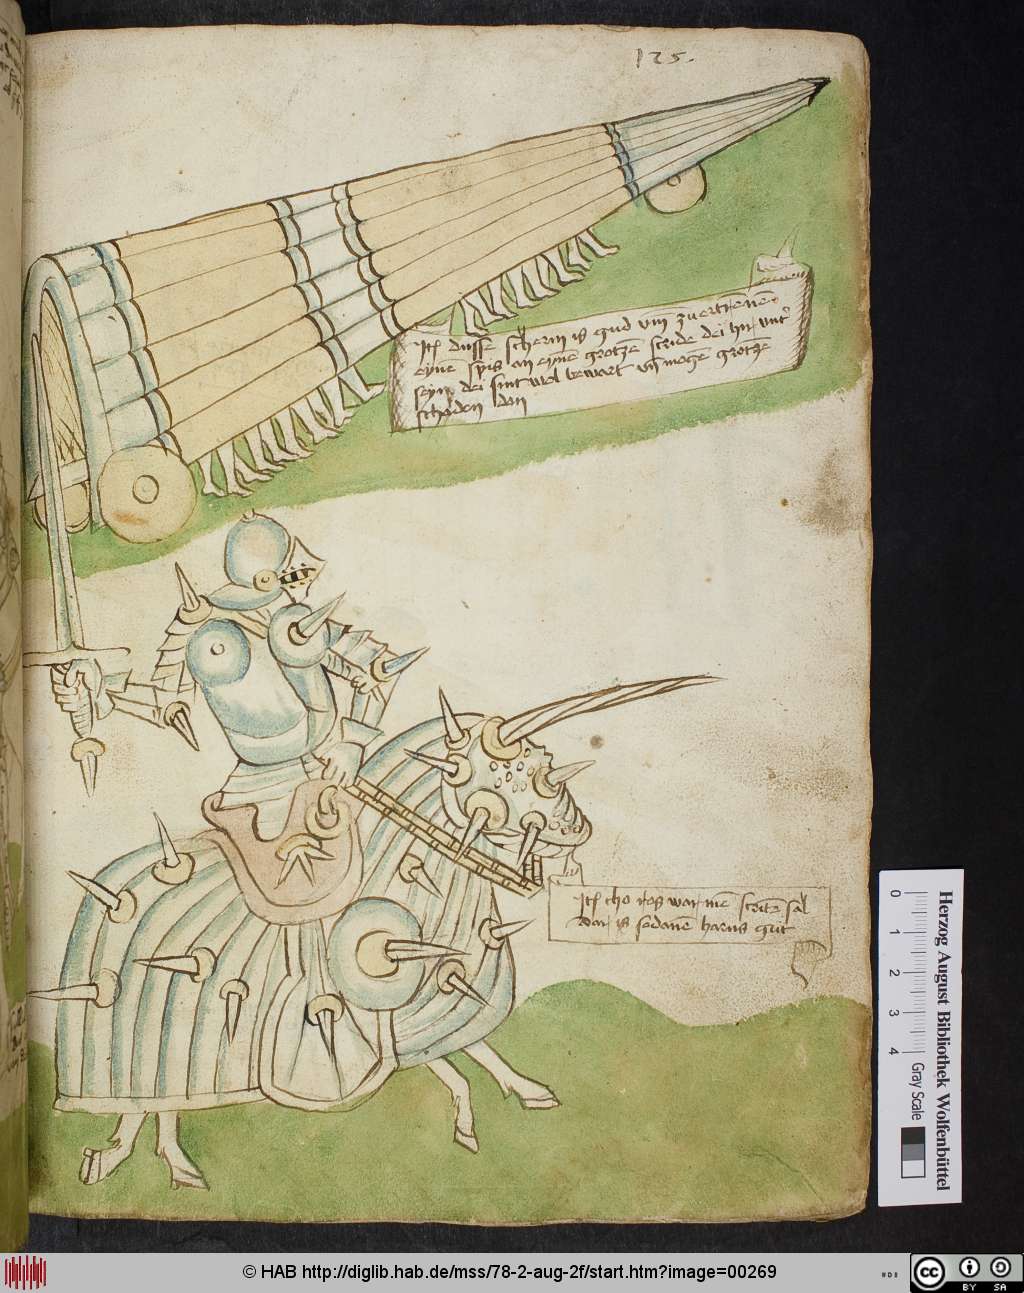 125.
Itē dusse scherm is gud vm̄ zuertrēnē
eyne spis an eyne grotzē stride dei hir vntʼ
seyn dei sint wol bewart vn̄ mogē grotze
schaden don
Itē cho ros war mē stritē sal
dar is sodanē harns gut
0 1 2 3 4
Herzog August Bibliothek Wolfenbüttel
Gray Scale
© HAB http://diglib.hab.de/mss/78-2-aug-2f/start.htm?image=00269
cc BY SA